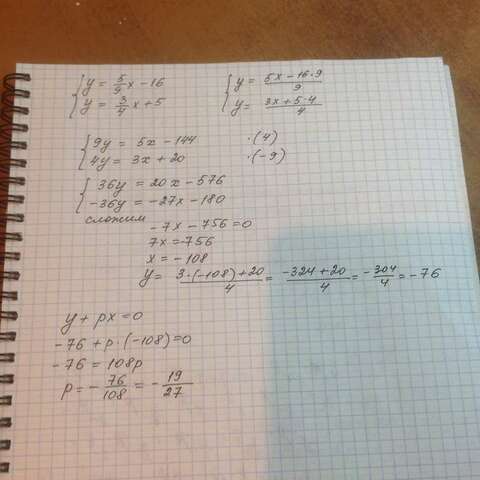 { y = 5/9 x - 16
y = 3/4 x + 5
{ y = (5x - 16·9)/9
y = (3x + 5·4)/4
{ 9y = 5x - 144 ·(4)
4y = 3x + 20 ·(-9)
{ 36y = 20x - 576
-36y = -27x - 180
сложим
-7x - 756 = 0
7x = -756
x = -108
y = (3·(-108) + 20)/4 = (-324 + 20)/4 = -304/4 = -76
y + px = 0
-76 + p·(-108) = 0
-76 = 108p
p = -76/108 = -19/27